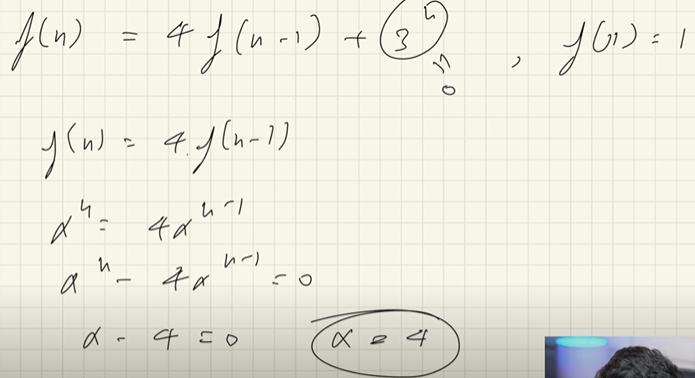 f(n) = 4f(n-1) + 3^n , f(1) = 1
= 0
f(n) = 4.f(n-1)
α^n = 4α^{n-1}
α^n - 4α^{n-1} = 0
α - 4 = 0 α = 4